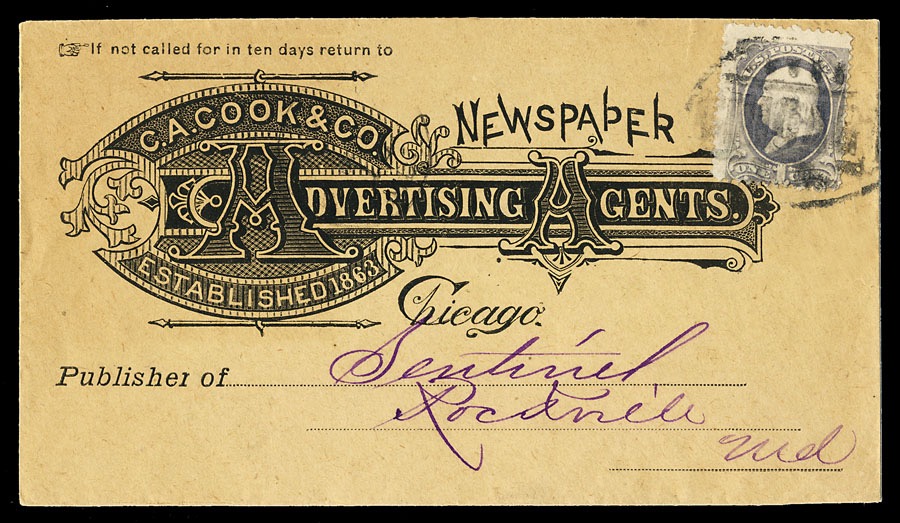 ☞If not called for in ten days return to
C.A. COOK & CO
NEWSPAPER
ADVERTISING AGENTS.
ESTABLISHED 1863
Chicago.
Publisher of Sentinel
Rockville
Md
U.S. POSTAGE
ONE